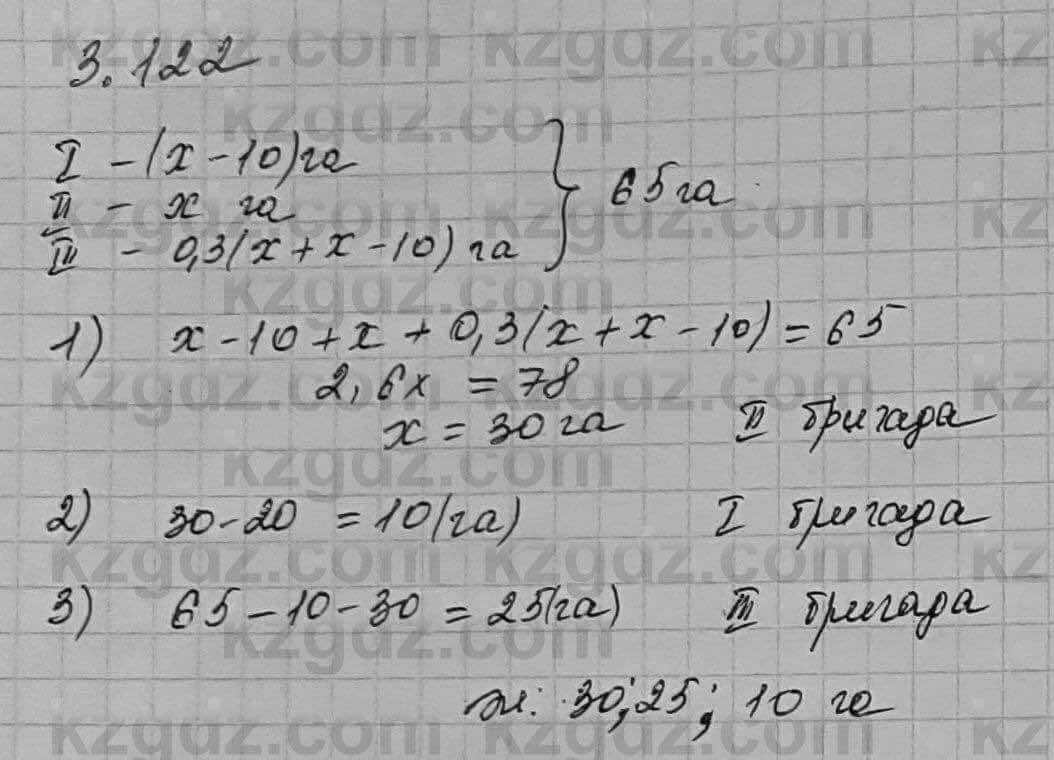 3.122
I - (x - 10) га
II - x га
III - 0,3(x + x - 10) га
} 65 га
1) x - 10 + x + 0,3(x + x - 10) = 65
2,6x = 78
x = 30 га II бригада
2) 30 - 20 = 10 (га) I бригада
3) 65 - 10 - 30 = 25 (га) III бригада
ж: 30; 25; 10 га
kzgdz.com